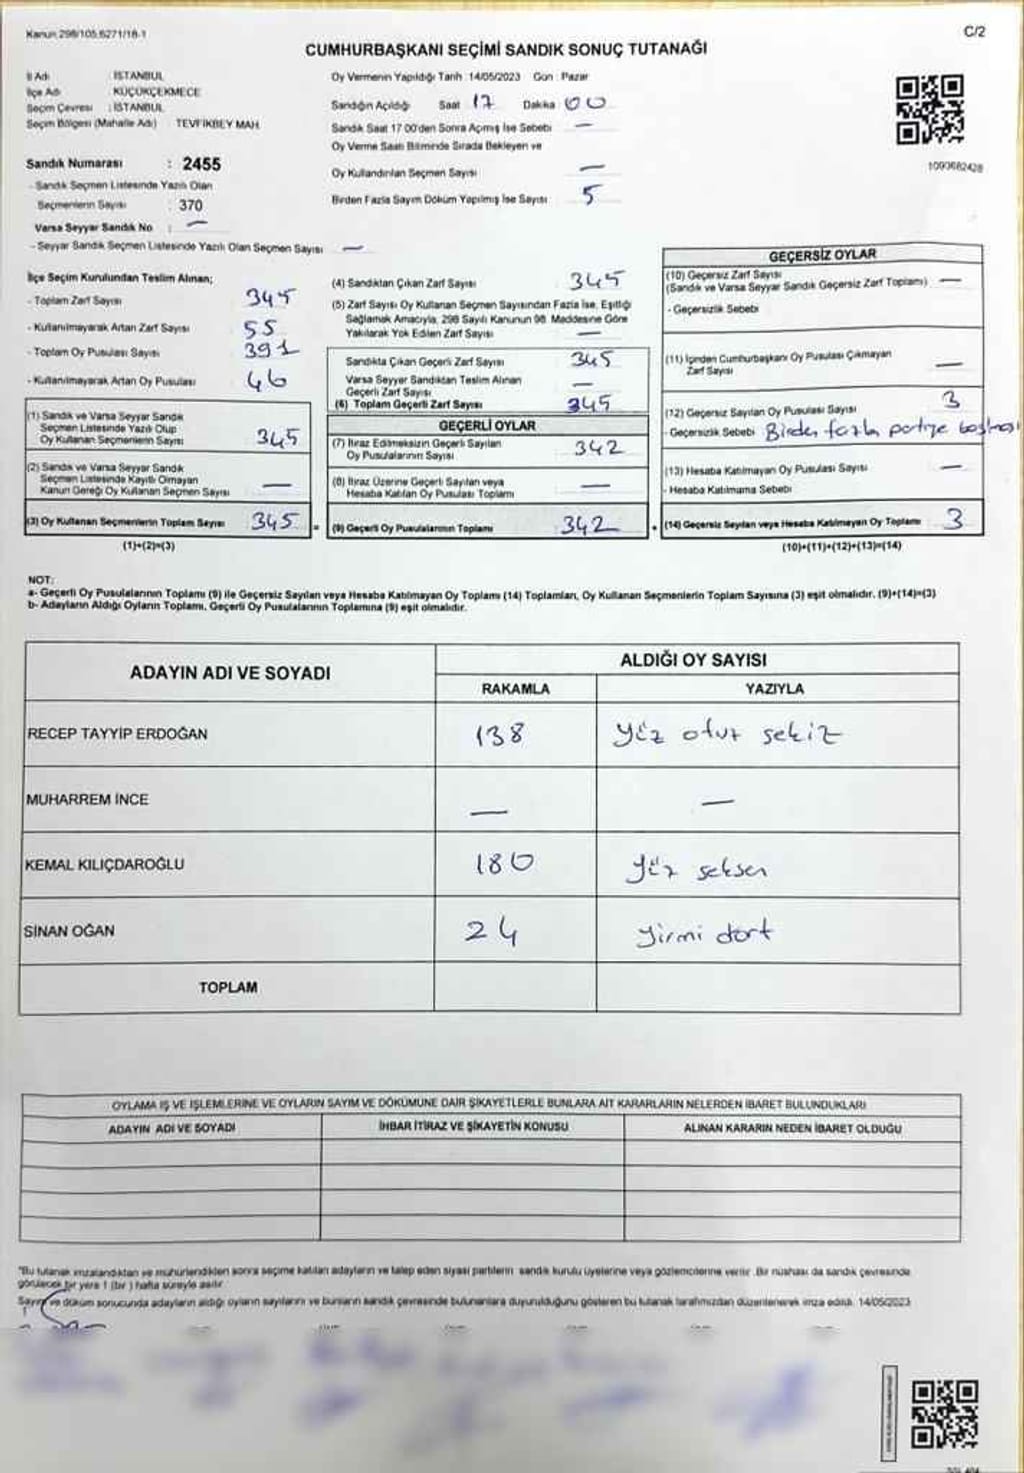 Kanun 298/105,6271/18-1
C/2
CUMHURBAŞKANI SEÇİMİ SANDIK SONUÇ TUTANAĞI
İl Adı : İSTANBUL
İlçe Adı : KÜÇÜKÇEKMECE
Seçim Çevresi : İSTANBUL
Seçim Bölgesi (Mahalle Adı) TEVFİKBEY MAH.
Sandık Numarası : 2455
- Sandık Seçmen Listesinde Yazılı Olan
Seçmenlerin Sayısı : 370
Varsa Seyyar Sandık No : —
- Seyyar Sandık Seçmen Listesinde Yazılı Olan Seçmen Sayısı —
Oy Vermenin Yapıldığı Tarih :14/05/2023 Gün : Pazar
Sandığın Açıldığı Saat 17 Dakika 00
Sandık Saat 17:00'den Sonra Açılmış İse Sebebi —
Oy Verme Saati Bitiminde Sırada Bekleyen ve
Oy Kullandırılan Seçmen Sayısı —
Birden Fazla Sayım Döküm Yapılmış İse Sayısı 5
1090682428
İlçe Seçim Kurulundan Teslim Alınan;
- Toplam Zarf Sayısı 345
- Kullanılmayarak Artan Zarf Sayısı 55
- Toplam Oy Pusulası Sayısı 391
- Kullanılmayarak Artan Oy Pusulası 46
(1) Sandık ve Varsa Seyyar Sandık
Seçmen Listesinde Yazılı Olup
Oy Kullanan Seçmenlerin Sayısı 345
(2) Sandık ve Varsa Seyyar Sandık
Seçmen Listesinde Kayıtlı Olmayan
Kanun Gereği Oy Kullanan Seçmen Sayısı —
(3) Oy Kullanan Seçmenlerin Toplam Sayısı 345 =
(1)+(2)=(3)
(4) Sandıktan Çıkan Zarf Sayısı 345
(5) Zarf Sayısı Oy Kullanan Seçmen Sayısından Fazla İse, Eşitliği
Sağlamak Amacıyla, 298 Sayılı Kanunun 98. Maddesine Göre
Yakılarak Yok Edilen Zarf Sayısı —
Sandıkta Çıkan Geçerli Zarf Sayısı 345
Varsa Seyyar Sandıktan Teslim Alınan
Geçerli Zarf Sayısı —
(6) Toplam Geçerli Zarf Sayısı 345
GEÇERLİ OYLAR
(7) İtiraz Edilmeksizin Geçerli Sayılan
Oy Pusulalarının Sayısı 342
(8) İtiraz Üzerine Geçerli Sayılan veya
Hesaba Katılan Oy Pusulası Toplamı —
(9) Geçerli Oy Pusulalarının Toplamı 342 +
GEÇERSİZ OYLAR
(10) Geçersiz Zarf Sayısı
(Sandık ve Varsa Seyyar Sandık Geçersiz Zarf Toplamı) —
- Geçersizlik Sebebi
(11) İçinden Cumhurbaşkanı Oy Pusulası Çıkmayan
Zarf Sayısı —
(12) Geçersiz Sayılan Oy Pusulası Sayısı 3
- Geçersizlik Sebebi Birden fazla partiye basılması
(13) Hesaba Katılmayan Oy Pusulası Sayısı —
- Hesaba Katılmama Sebebi
(14) Geçersiz Sayılan veya Hesaba Katılmayan Oy Toplamı 3
(10)+(11)+(12)+(13)=(14)
NOT:
a- Geçerli Oy Pusulalarının Toplamı (9) ile Geçersiz Sayılan veya Hesaba Katılmayan Oy Toplamı (14) Toplamları, Oy Kullanan Seçmenlerin Toplam Sayısına (3) eşit olmalıdır. (9)+(14)=(3)
b- Adayların Aldığı Oyların Toplamı, Geçerli Oy Pusulalarının Toplamına (9) eşit olmalıdır.
ADAYIN ADI VE SOYADI
ALDIĞI OY SAYISI
RAKAMLA YAZIYLA
RECEP TAYYİP ERDOĞAN 138 Yüz otuz sekiz
MUHARREM İNCE — —
KEMAL KILIÇDAROĞLU 180 Yüz seksen
SİNAN OĞAN 24 Yirmi dört
TOPLAM
OYLAMA İŞ VE İŞLEMLERİNE VE OYLARIN SAYIM VE DÖKÜMÜNE DAİR ŞİKAYETLERLE BUNLARA AİT KARARLARIN NELERDEN İBARET BULUNDUKLARI
ADAYIN ADI VE SOYADI İHBAR İTİRAZ VE ŞİKAYETİN KONUSU ALINAN KARARIN NEDEN İBARET OLDUĞU
*Bu tutanak imzalandıktan ve mühürlendikten sonra seçime katılan adayların ve talep eden siyasi partilerin sandık kurulu üyelerine veya gözlemcilerine verilir. Bir nüshası da sandık çevresinde
görülecek bir yere 1 (bir ) hafta süreyle asılır.
Sayım ve döküm sonucunda adayların aldığı oyların sayılarını ve bunların sandık çevresinde bulunanlara duyurulduğunu gösteren bu tutanak tarafımızdan düzenlenerek imza edildi. 14/05/2023